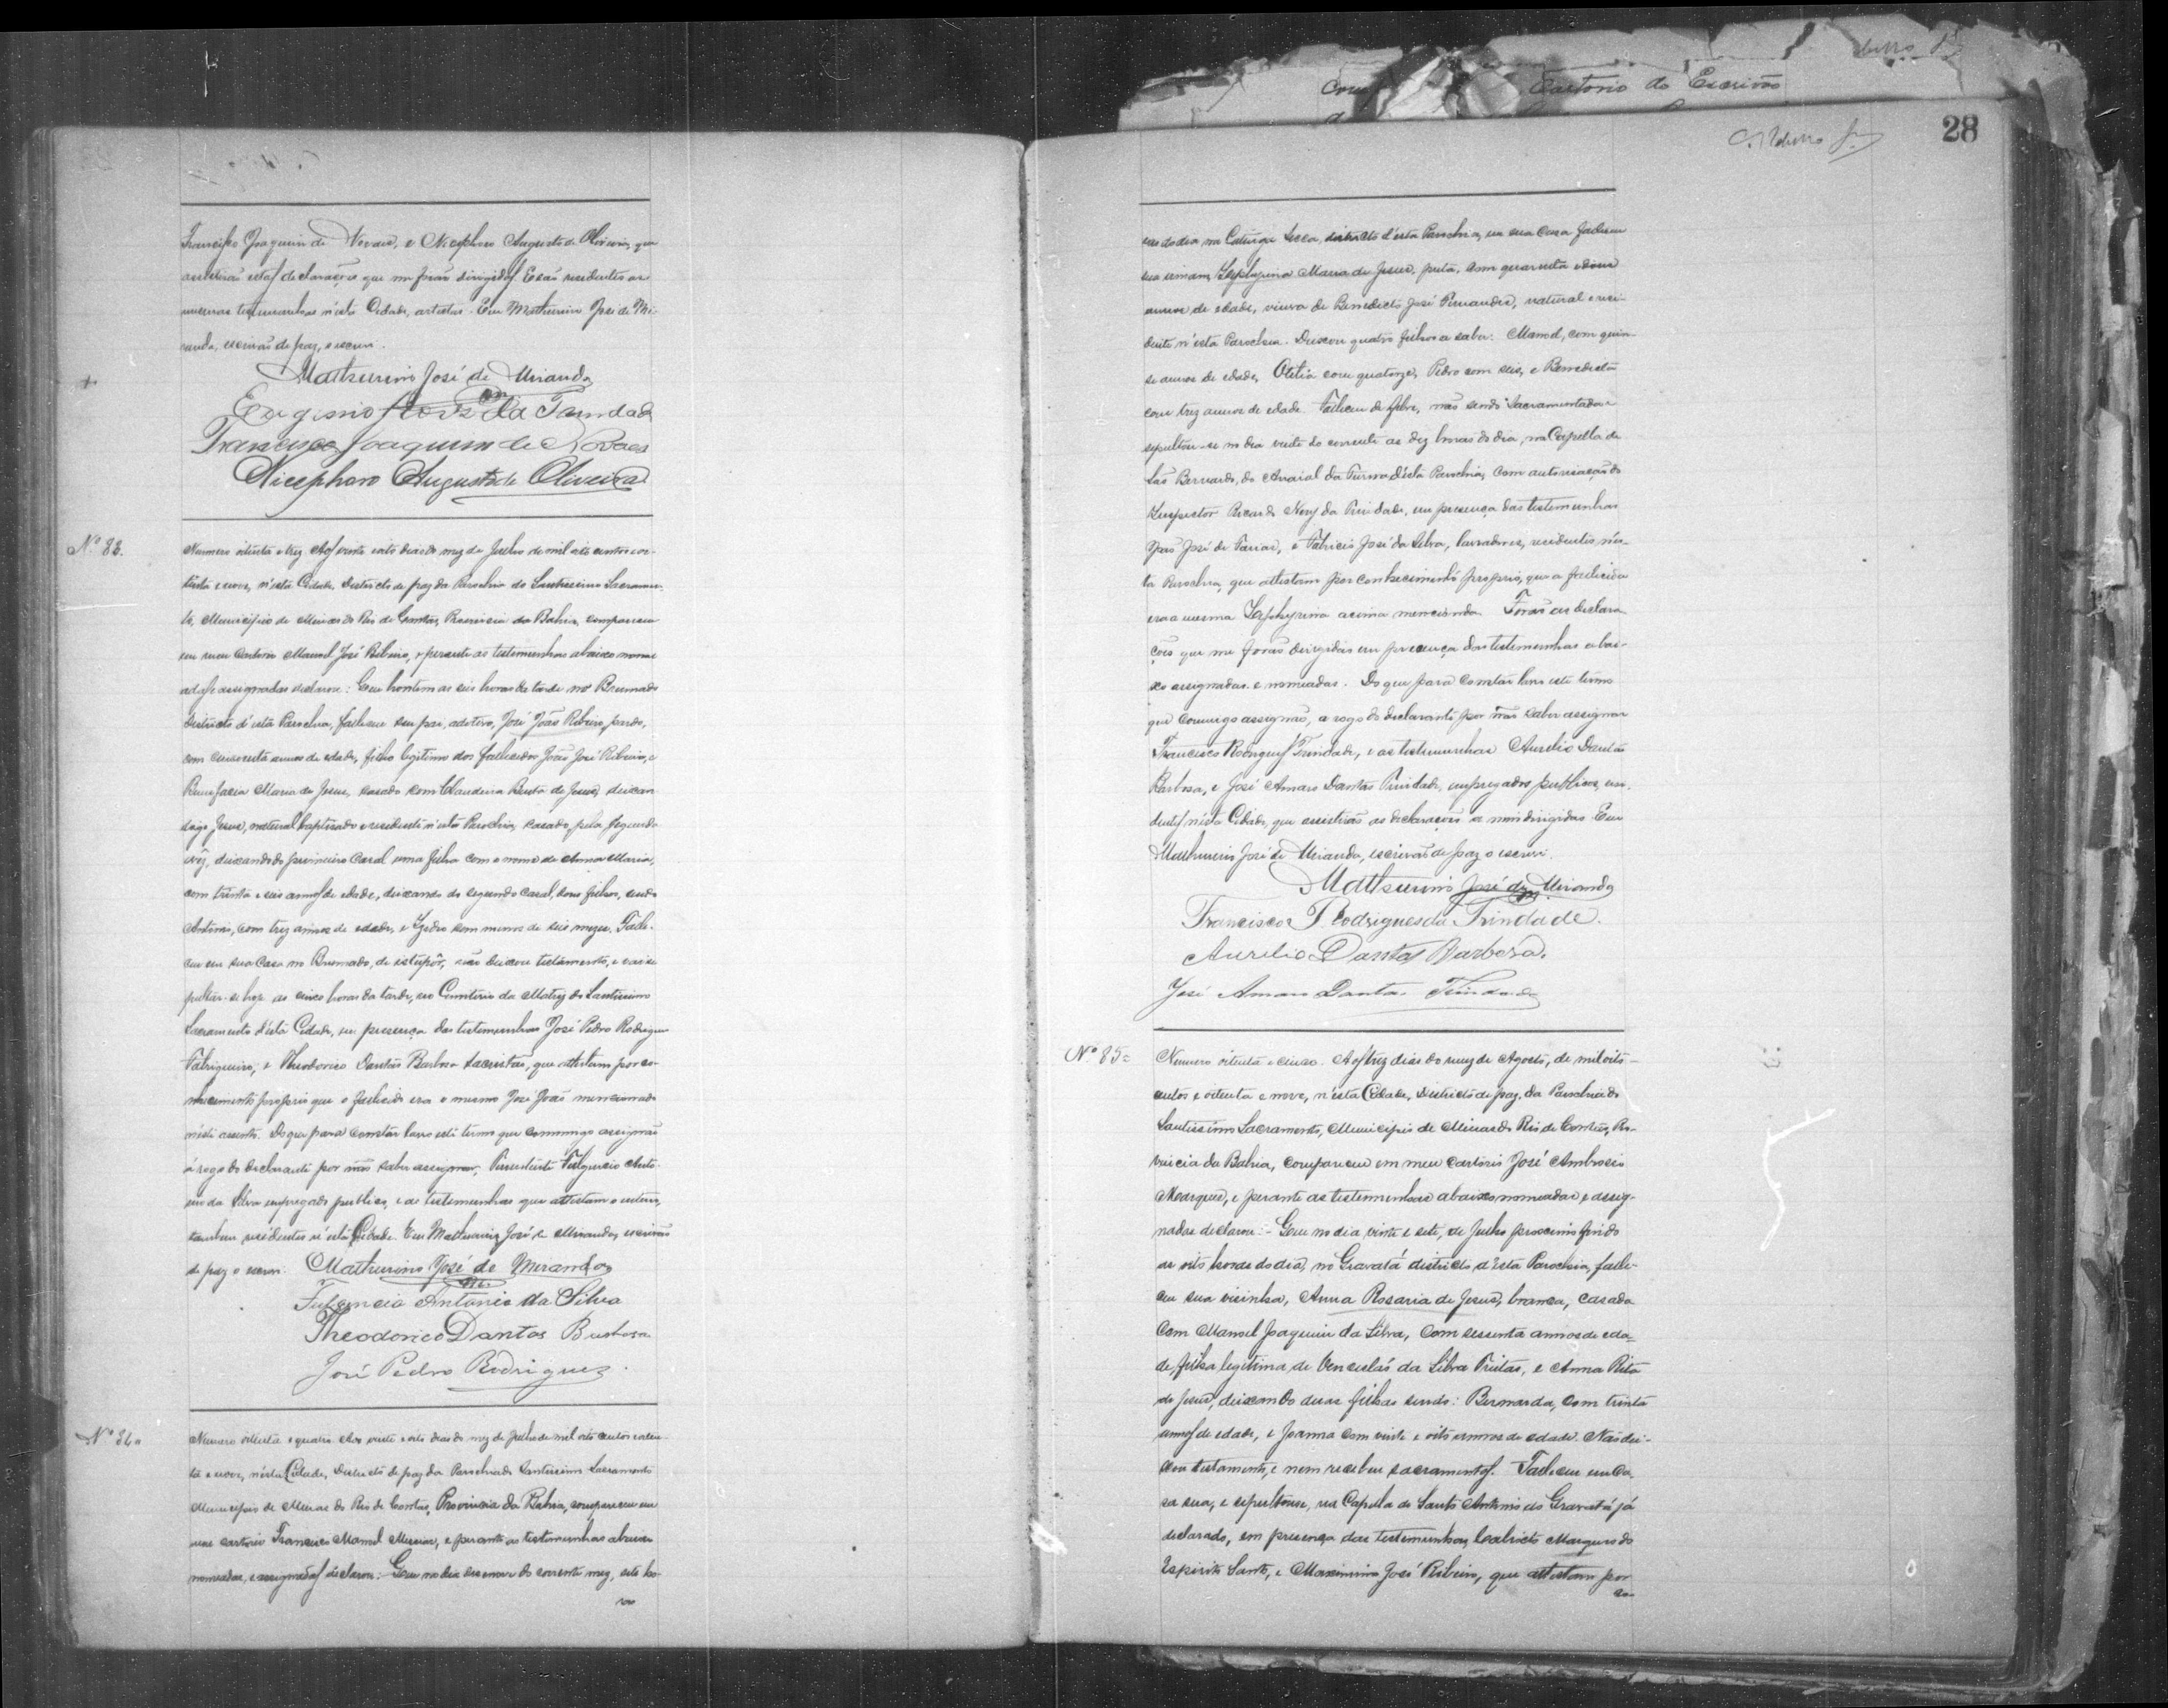 Francisco Joaquim de Novaes, e Nicephoro Augusto de Oliveira, que
assistirão estas declarações que me forão dirigidas. E são residentes as
mesmas testemunhas n'esta Cidade, artistas. Eu Mathurino José de Mi-
randa, escrivão de paz, o escrevi.
Mathurino José de Miranda
Francisco Joaquim de Novaes
Nicephoro Augusto de Oliveira
Nº 83.
Numero oitenta e trez. Aos vinte oito dias do mez de Julho de mil oito centos e oi-
tenta e nove, n'esta Cidade, Districto de paz da Parochia do Santissimo Sacramen-
to, Municipio de Minas do Rio de Contas, Provincia da Bahia, compareceu
em meu Cartorio Manoel José Ribeiro, e perante as testemunhas abaixo nome-
adas e assignadas declarou: Que hontem as seis horas da tarde no Brumado
Districto d'esta Parochia, falleceu seu pae, adotivo, José João Ribeiro, pardo,
com cincoenta annos de edade, filho legitimo dos fallecidos João José Ribeiro, e
Bonifacia Maria de Jesus, casado com Claudina Benta de Jesus, deixan
digo Jesus, natural baptisado e residente n'esta Parochia, casado pela segunda
vêz, deixando do primeiro casal uma filha com o nome de Anna Maria,
com trinta e seis annos de edade, deixando do segundo casal, dous filhos, sendo
Antonio, com trez annos de edade, e Izidro com menos de seis mezes. Falle-
ceu em sua casa no Brumado, de estupôr, não deixou testamento, e vai se
pultar-se hoje as cinco horas da tarde, no Cemiterio da Matriz do Santissimo
Sacramento d'esta Cidade, em presença das testemunhas José Pedro Rodrigues
Fabriqueiro, e Theodorico Dantas Barbosa Sacristão, que attestam por co-
nhecimento proprio que o fallecido era o mesmo José João mencionado
n'este assento. Do que para constar lavro este termo que commigo assignão
a rogo do declarante por não saber assignar, Fulgencio Anto-
nio da Silva empregado publico, e as testemunhas que attestam o enterro,
tambem residentes n'esta Cidade. Eu Mathurino José de Miranda, escrivão
de paz o escrevi. Mathurino José de Miranda
Fulgencio Antonio da Silva
Theodorico Dantas Barbosa
José Pedro Rodrigues.
Nº 84.
Numero oitenta e quatro. Aos vinte e oito dias do mez de Julho de mil oito centos e oiten-
ta e nove, n'esta Cidade, Districto de paz da Parochia do Santissimo Sacramento
Municipio de Minas do Rio de Contas, Provincia da Bahia, compareceu em
meu cartorio Francisco Manoel, e perante as testemunhas abaixo
nomeadas, e assignadas declarou: Que no dia desenove do corrente mez, oito ho-
ras
Cartorio do Escrivão
28
ras do dia na, districto d'esta Parochia, em sua casa falleceu
sua irmam, Zephyrina Maria de Jesus, preta, com quarenta e dous
annos de edade, viuva de Benedicto José Fernandes, natural e resi-
dente n'esta Parochia. Deixou quatro filhos a saber: Manoel, com quin-
se annos de edade, Otilia com quatorze, Pedro com seis, e Benedicto
com trez annos de edade. Falleceu de febre, não sendo Sacramentada e
sepultou-se no dia vinte do corrente as dez horas do dia, na Capella de
São Bernardo, do Arraial da Furna d'esta Parochia, com autorisação do
Inspector Ricardo Nery da Trindade, em presença das testemunhas
João José de Farias, e Fabricio José da Silva, lavradores, residentes n'es-
ta Parochia, que attestam por conhecimento proprio, que a fallecida
era a mesma Zephyrina acima mencionada. Forão as declara
ções que me forão dirigidas em presença das testemunhas abai-
xo assignadas e nomeadas. Do que para constar lavro este termo
que commigo assignão, a rogo do declarante por não saber assignar
Francisco Rodrigues Trindade, e as testemunhas Aurelio Dantas
Barbosa, e José Amaro Dantas Trindade, empregados publicos, resi-
dentes n'esta Cidade, que assistirão as declarações a mim dirigidas. Eu
Mathurino José de Miranda, escrivão de paz o escrevi.
Mathurino José de Miranda
Francisco Rodrigues da Trindade.
Aurelio Dantas Barbosa.
José Amaro Dantas Trindade
Nº 85.
Numero oitenta e cinco. Aos trez dias do mez de Agosto, de mil oito-
centos e oitenta e nove, n'esta Cidade, Districto de paz, da Parochia do
Santissimo Sacramento, Municipio de Minas do Rio de Contas, Pro-
vincia da Bahia, compareceu em meu cartorio José Ambrosio
Marques, e perante as testemunhas abaixo nomeadas e assig-
nadas declarou:- Que no dia vinte e sete, de Julho proximo findo
as oito horas do dia, no Gravatá districto d'esta Parochia, falle-
ceu sua visinha, Anna Rosaria de Jesus, branca, casada
com Manoel Joaquim da Silva, com sessenta annos de eda-
de, filha legitima de Venceslás da Silva Freitas, e Anna Rita
de Jesus, deixando duas filhas sendo: Bernarda, com trinta
annos de edade, e Joanna com vinte e oito annos de edade. Não dei-
xou testamento, e nem recebeu sacramentos. Falleceu em ca-
sa sua, e sepultouse, na Capella de Santo Antonio do Gravatá já
declarado, em presença das testemunhas, Calixto Marques do
Espirito Santo, e Maximino José Ribeiro, que attestam por
co-